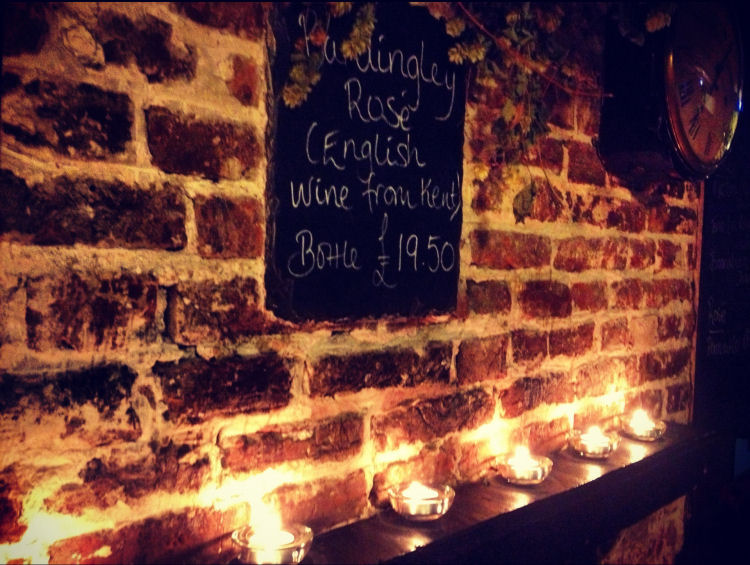 Rosé
(English
Wine from Kent)
Bottle £19.50
Rose